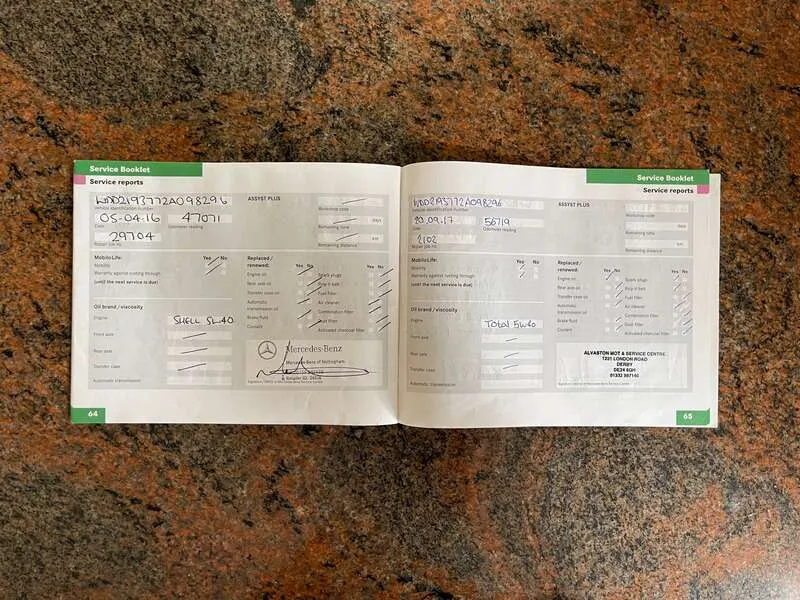 Service Booklet
Service reports
WDD2193772A098296
Vehicle identification number
05-04.16 47071
Date Odometer reading
29704
Repair job no.
ASSYST PLUS
Workshop code
days
Remaining time
km
Remaining distance
MobiloLife: Yes No
Mobility
Warranty against rusting through
(until the next service is due)
Replaced / renewed: Yes No
Engine oil
Rear axle oil
Transfer case oil
Automatic transmission oil
Brake fluid
Coolant
Yes No
Spark plugs
Poly-V belt
Fuel filter
Air cleaner
Combination filter
Dust filter
Activated charcoal filter
Oil brand / viscosity
Engine SHELL 5W40
Front axle
Rear axle
Transfer case
Automatic transmission
Mercedes-Benz
Mercedes-Benz of Nottingham
64
Service Booklet
Service reports
WDD2193772A098296
Vehicle identification number
20.09.17 56719
Date Odometer reading
2102
Repair job no.
ASSYST PLUS
Workshop code
days
Remaining time
km
Remaining distance
MobiloLife: Yes No
Mobility
Warranty against rusting through
(until the next service is due)
Replaced / renewed: Yes No
Engine oil
Rear axle oil
Transfer case oil
Automatic transmission oil
Brake fluid
Coolant
Yes No
Spark plugs
Poly-V belt
Fuel filter
Air cleaner
Combination filter
Dust filter
Activated charcoal filter
Oil brand / viscosity
Engine Total 5w40
Front axle
Rear axle
Transfer case
Automatic transmission
ALVASTON MOT & SERVICE CENTRE
1221 LONDON ROAD
DERBY
DE24 8QH
65